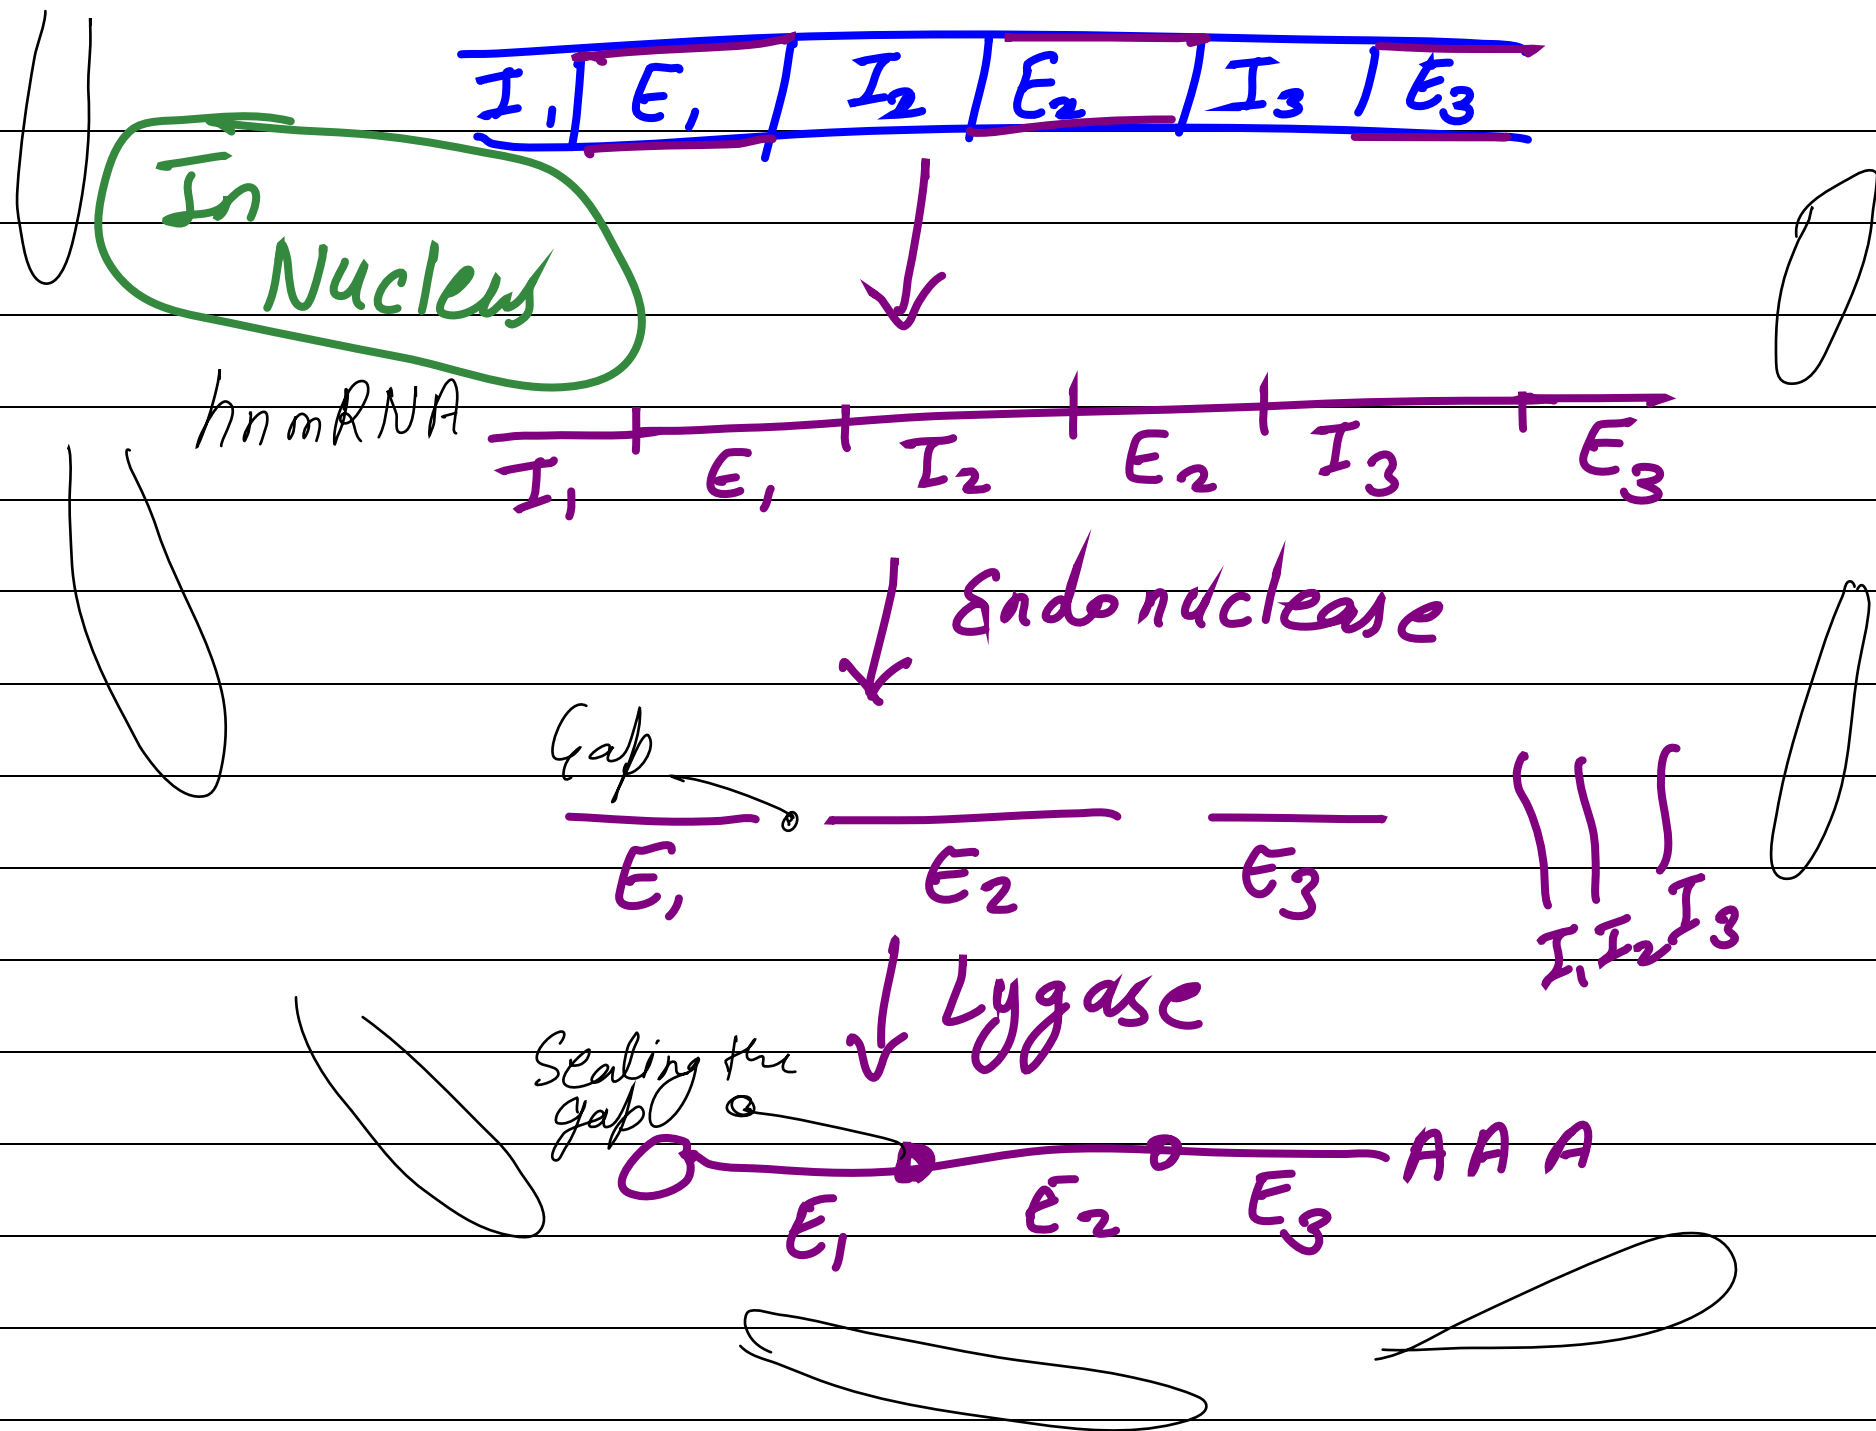 I1 E1 I2 E2 I3 E3
In
Nucleus
hnmRNA
I1 E1 I2 E2 I3 E3
Endonuclease
Gap
E1 E2 E3 I1 I2 I3
Lygase
Sealing the
gap
AAA
E1 E2 E3